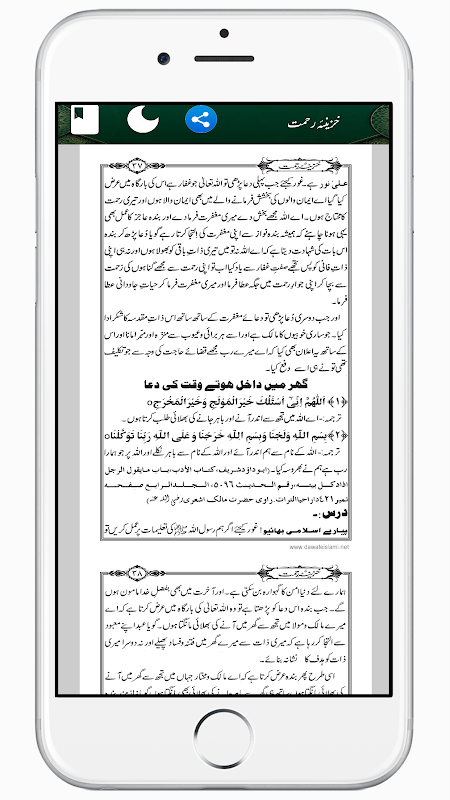 خزینۂ رحمت
۳۷
خزینۂ رحمت
علیٰ نور ہے۔ غور کیجئے جب پہلی دعا پڑھی تو اللہ تعالٰی جو غفار ہے اس کی بارگاہ میں عرض
کیا گیا اے ایمان والوں کی بخشش فرمانے والے میں بھی ایمان والا ہوں اور تیری رحمت
کا محتاج ہوں۔ اے اللہ مجھے بخش دے میری مغفرت فرما دے اور بندہ عاجز کا عمل بھی
یہی ہونا چاہئے کہ ہمیشہ بندہ نواز سے اپنی مغفرت کی اِلتجا کرتا رہے گویا دُعا پڑھ کر بندہ
اس بات کی شہادت دیتا ہے کہ اے اللہ نہ تو میں تیری ذاتِ باقی کو بھولا ہوں اور نہ ہی اپنی
ذاتِ فانی کو پس تجھے صفتِ غفار سے یاد کیا اب تو اپنی رحمت سے مجھے گناہوں کی زحمت
سے بچا کر اپنی جوارِ رحمت میں جگہ عطا فرما اور میری مغفرت فرما کر حیاتِ جاودانی عطا
فرما۔
اور جب دوسری دُعا پڑھی تو دعائے مغفرت کے ساتھ ساتھ اس ذاتِ مقدسہ کا شکر ادا
کیا۔ جو ساری خوبیوں کا مالک ہے اور اسے ہر برائی و عیوب سے منزہ اور مبرا مانا اور اس
کے ساتھ یہ اعلان بھی کیا کہ اے میرے رب مجھے قضائے حاجت کی وجہ سے جو تکلیف
تھی تو نے ہی اسے دفع کیا۔
گھر میں داخل ہوتے وقت کی دعا
﴿۱﴾ اَللّٰھُمَّ اِنِّیْٓ اَسْئَلُکَ خَیْرَ الْمَوْلَجِ وَخَیْرَ الْمَخْرَجِ o
ترجمہ:- اے اللہ میں تجھ سے اندر آنے اور باہر جانے کی بھلائی طلب کرتا ہوں۔
﴿۲﴾ بِسْمِ اللّٰہِ وَلَجْنَا وَبِسْمِ اللّٰہِ خَرَجْنَا وَعَلَی اللّٰہِ رَبِّنَا تَوَکَّلْنَا o
ترجمہ:- اللہ کے نام سے ہم اندر آئے اور اللہ کے نام سے باہر نکلے اور اللہ پر جو ہمارا
رب ہے ہم نے بھروسہ کیا۔ (ابو داؤد شریف، کتاب الأدب، باب مایقول الرجل
اذا دخل بیتہ، رقم الحدیث ۵۰۹۶، المجلد الرابع صفحہ
نمبر ۴۲۱ دار احیا التراث. راوی حضرت مالک اشعری
درس:۔
پیارے اسلامی بھائیو! غور کیجئے اگر ہم رسول اللہ ﷺ کی تعلیمات پر عمل کریں تو
www.dawateislami.net
۳۸
خزینۂ رحمت
ہمارے لئے دنیا امن کا گہوارہ بن سکتی ہے۔ اور آخرت میں بھی بفضلِ خدا مامون ہوں
گے۔ جب بندہ اس دعا کو پڑھتا ہے تو وہ اللہ تعالٰی کی بارگاہ میں عرض کرتا ہے کہ اے
میرے مالک و مولا میں تجھ سے گھر میں آنے کی بھلائی مانگتا ہوں۔ گویا عبد اپنے معبود
سے التجا کر رہا ہے کہ میری ذات سے میرے گھر میں فتنہ و فساد پھیلے اور نہ دوسرا میری
ذات کو ہدف کا نشانہ بنائے۔
اسی طرح پھر بندہ عرض کرتا ہے کہ اے مالک و مختار جہاں میں تجھ سے گھر میں آنے